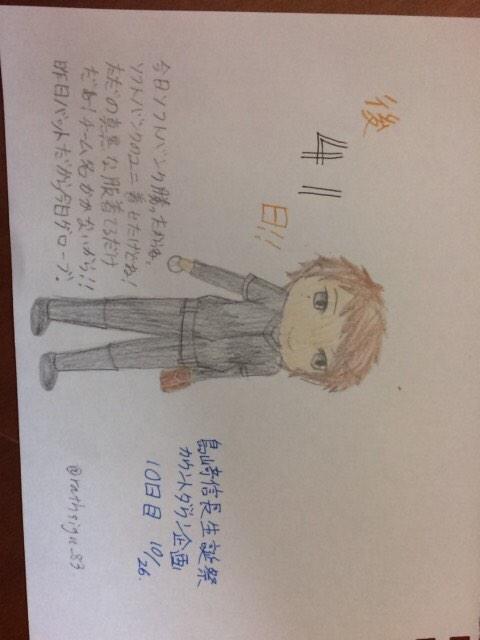 後
41
日!!
今日ソフトバンク勝ったからね。
ソフトバンクのユニ着せたけどね!
ただの真黒な服着てるだけ
だね!チーム名かかないから!!
昨日バットだから今日グローブ!
島﨑信長生誕祭
カウントダウン企画
10日目 10/26.
@rathsign_83